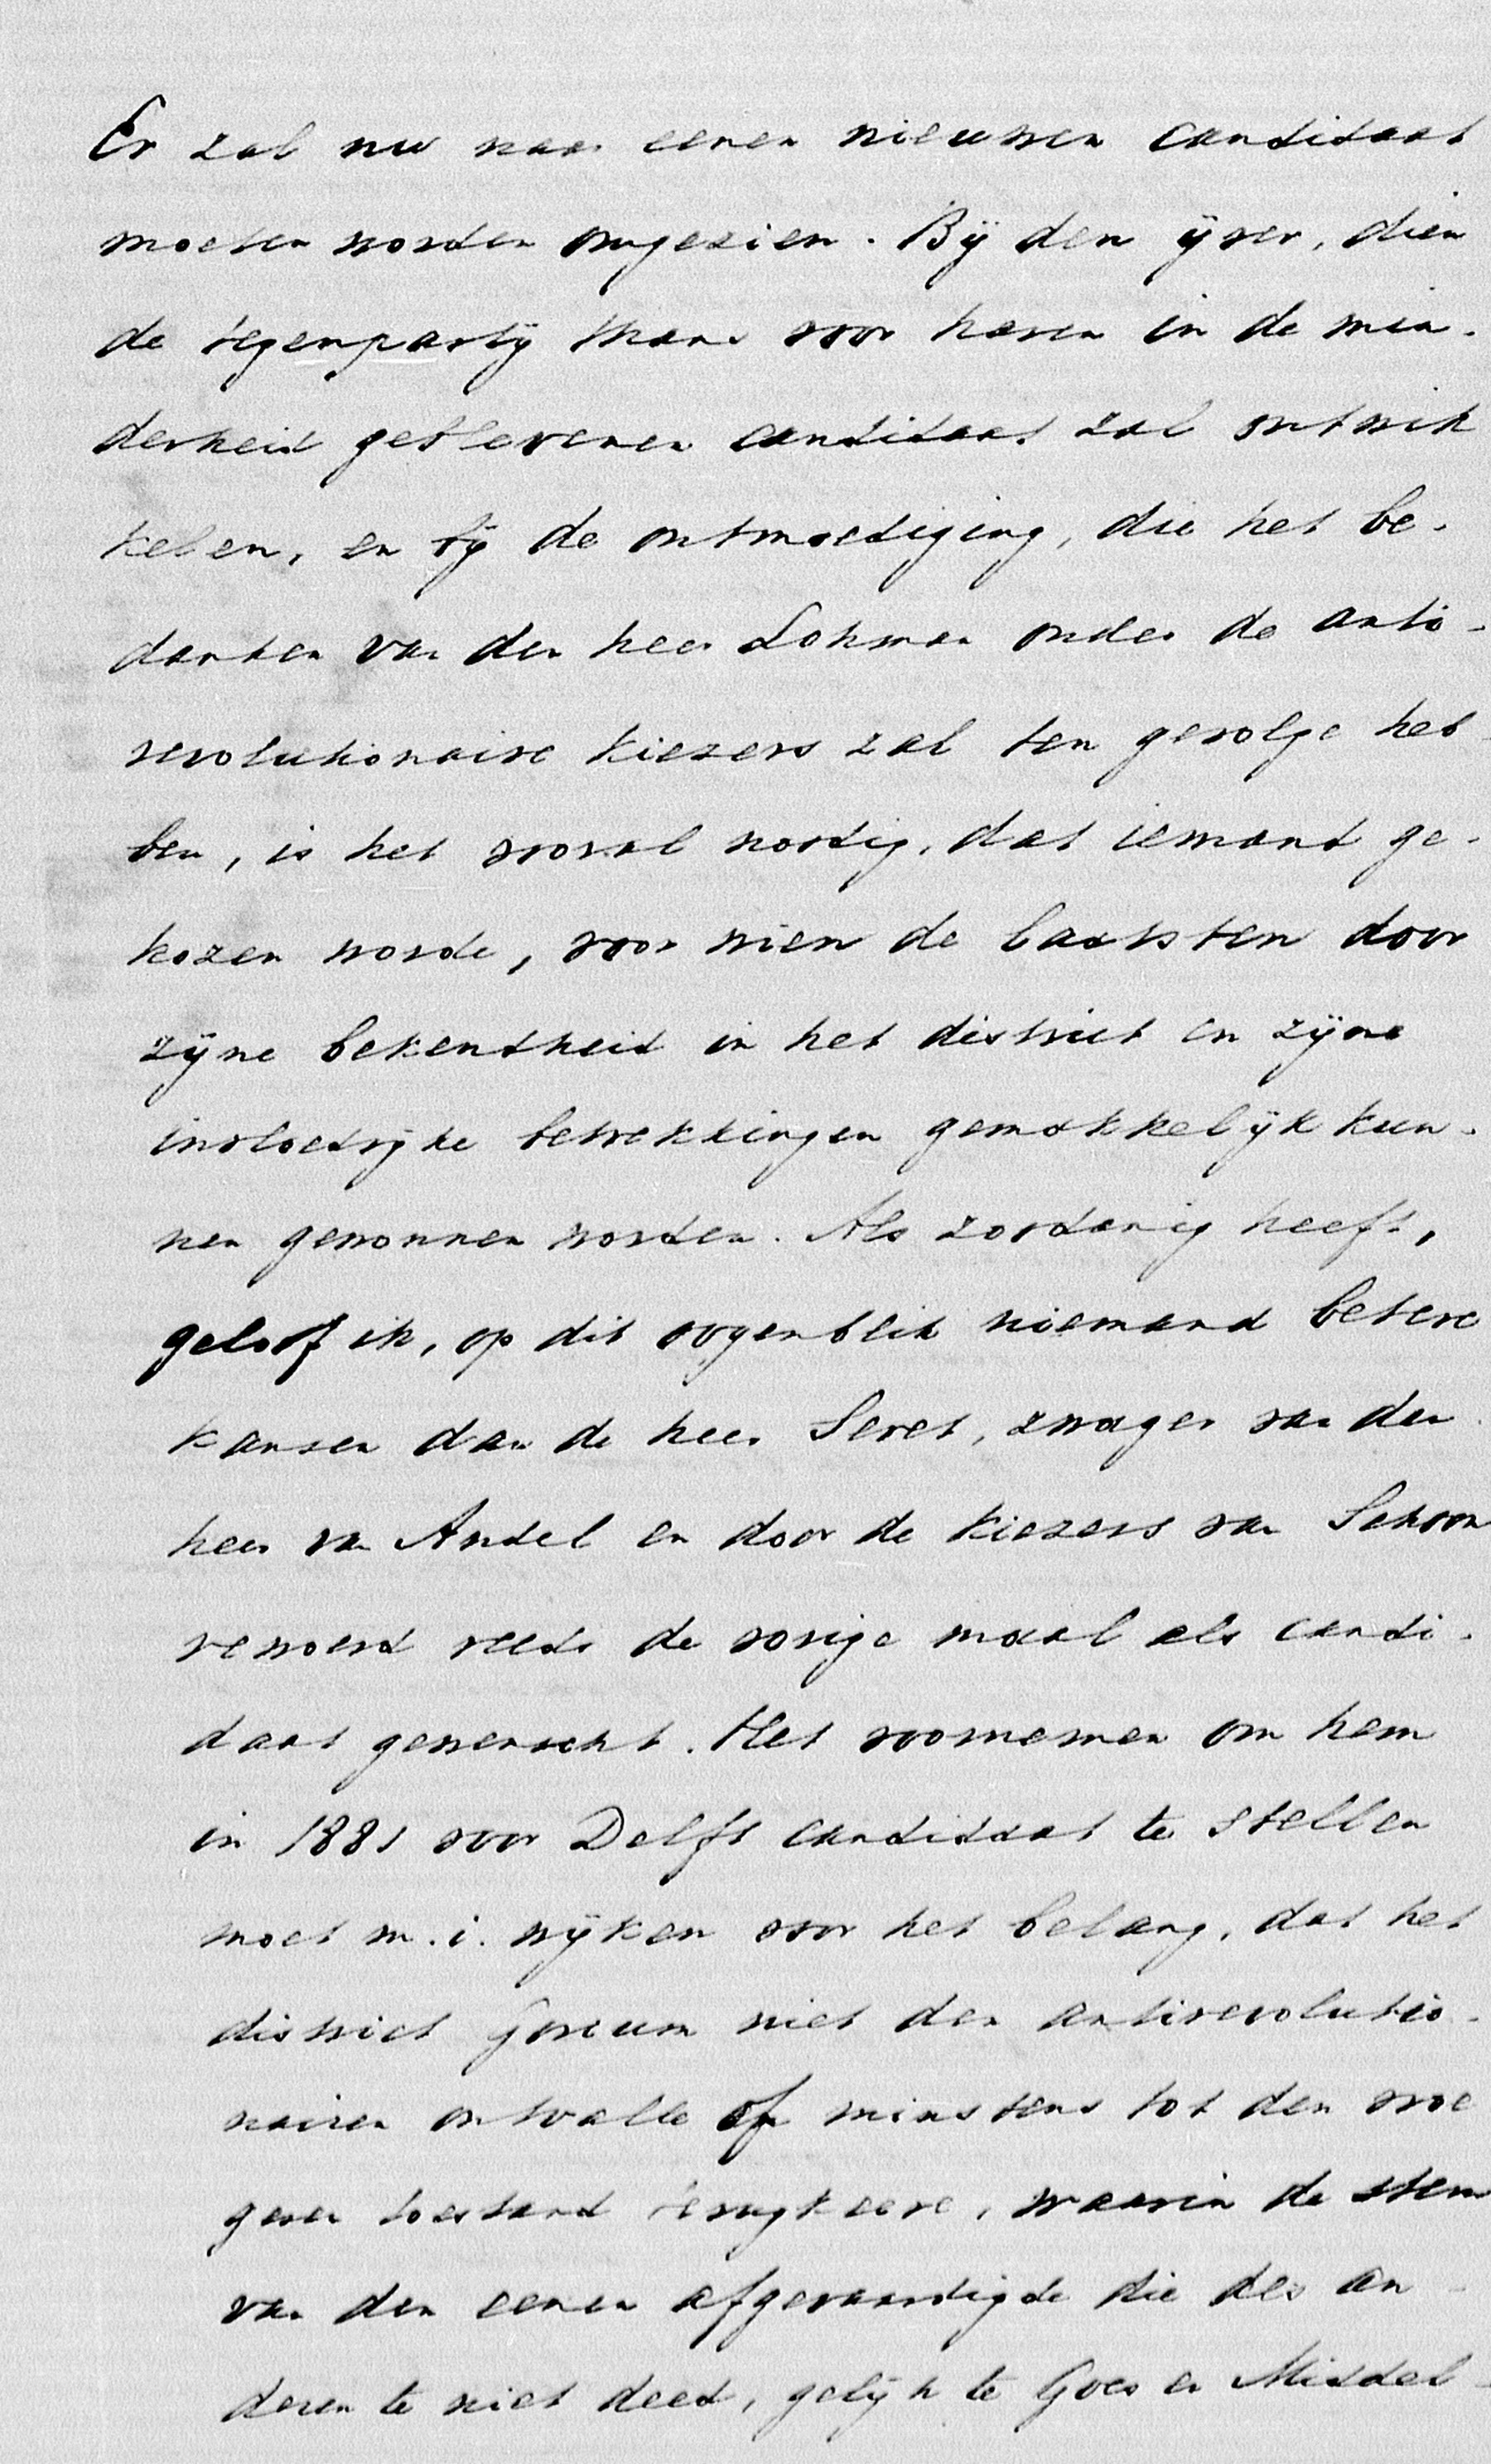 Er zal nu naar eenen nieuwen candidaat
moeten worden omgezien. Bij den ijver, dien
de tegenpartij thans voor haren in de min-
derheid gebleven candidaat zal ontwik
kelen, en bij de ontmoediging, die het be-
danken van den heer Lohman onder de anti-
revolutionaire kiezers zal ten gevolge heb-
ben, is het vooral noodig, dat iemand ge-
kozen worde, voor wien de laatsten door
zijne bekendheid in het district en zijne
invloedrijke betrekkingen gemakkelijk kun-
nen gewonnen worden. Als zoodanig heeft,
geloof ik, op dit oogenblik niemand betere
kansen dan de heer Seret, zwager van den
heer van Andel en door de kiezers van Schoon
rewoerd reeds de vorige maal als candi-
daat gewenscht. Het voornemen om hem
in 1881 voor Delft candidaat te stellen
moet m.i. wijken voor het belang, dat het
district Gorcum niet den antirevolutio-
nairen ontvalle of minstens tot den vroe
geren toestand terugkeere, waarin de stem
van den eenen afgevaardigde die des an-
deren te niet deed, gelijk te Goes en Middel-